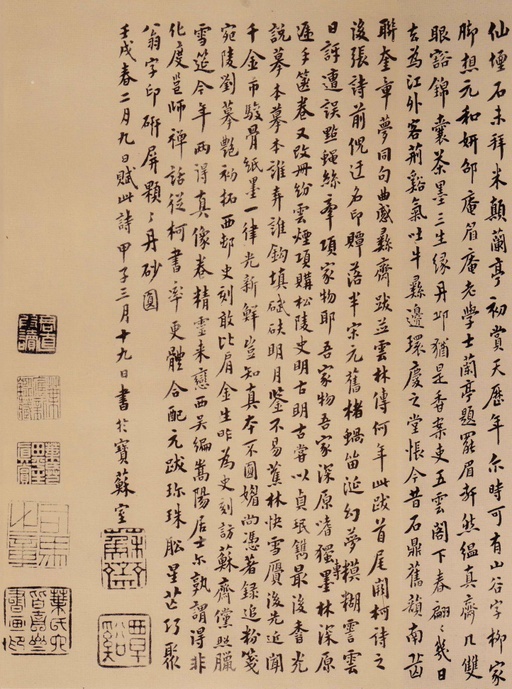 仙壇石未拜米顛蘭亭初賞天歷年尔時可有山谷字柳家
脚想元和妍邰庵眉庵老學士蘭亭題罷眉軒然緼真齋几雙
眼豁錦囊茶墨三生緣丹邱猶是香案吏五雲閣下春翩幾日
去為江外客荊谿氣吐牛斗邊環慶之堂悵今昔石鼎舊韻南宮
聯奎章夢同句曲感彞齋跋並雲林傳何年此跋首尾闕柯詩之
後張詩前倪迂名印贉落半宋元舊楮蝸笛涎幻夢模糊雲
日訝遭誤點蠅絲牽項家物耶吾家物吾家深原嗜獨墨林深原
遞手篋卷又改冊紛雲煙項購松陵史明古明古當以貞珉鐫最後香光
說摹本摹本誰弄誰鈎填碔砆明月鑒不易蕉林快雪贗後先近聞
千金市駿骨紙墨一律光新鮮豈知真本不圓媚尚憑著錄追粉箋
宛陵劉摹艷初拓西邨史刻敢比肩金生昨為史刻訪蘇齋儻照臘
雪筵今年兩得真像卷精靈來戀西吴編嵩陽居士尔孰謂得非
化度邕師禪話從柯書率更體合配元跋珎珠船星芒巧聚
翁字印研屏顆〻丹砂圓
壬戌春二月九日賦此詩甲子三月十九日書於寶蘇室